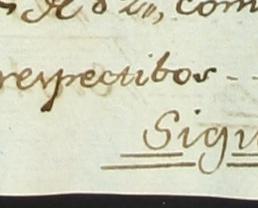 com
respectibos - -
Sigu